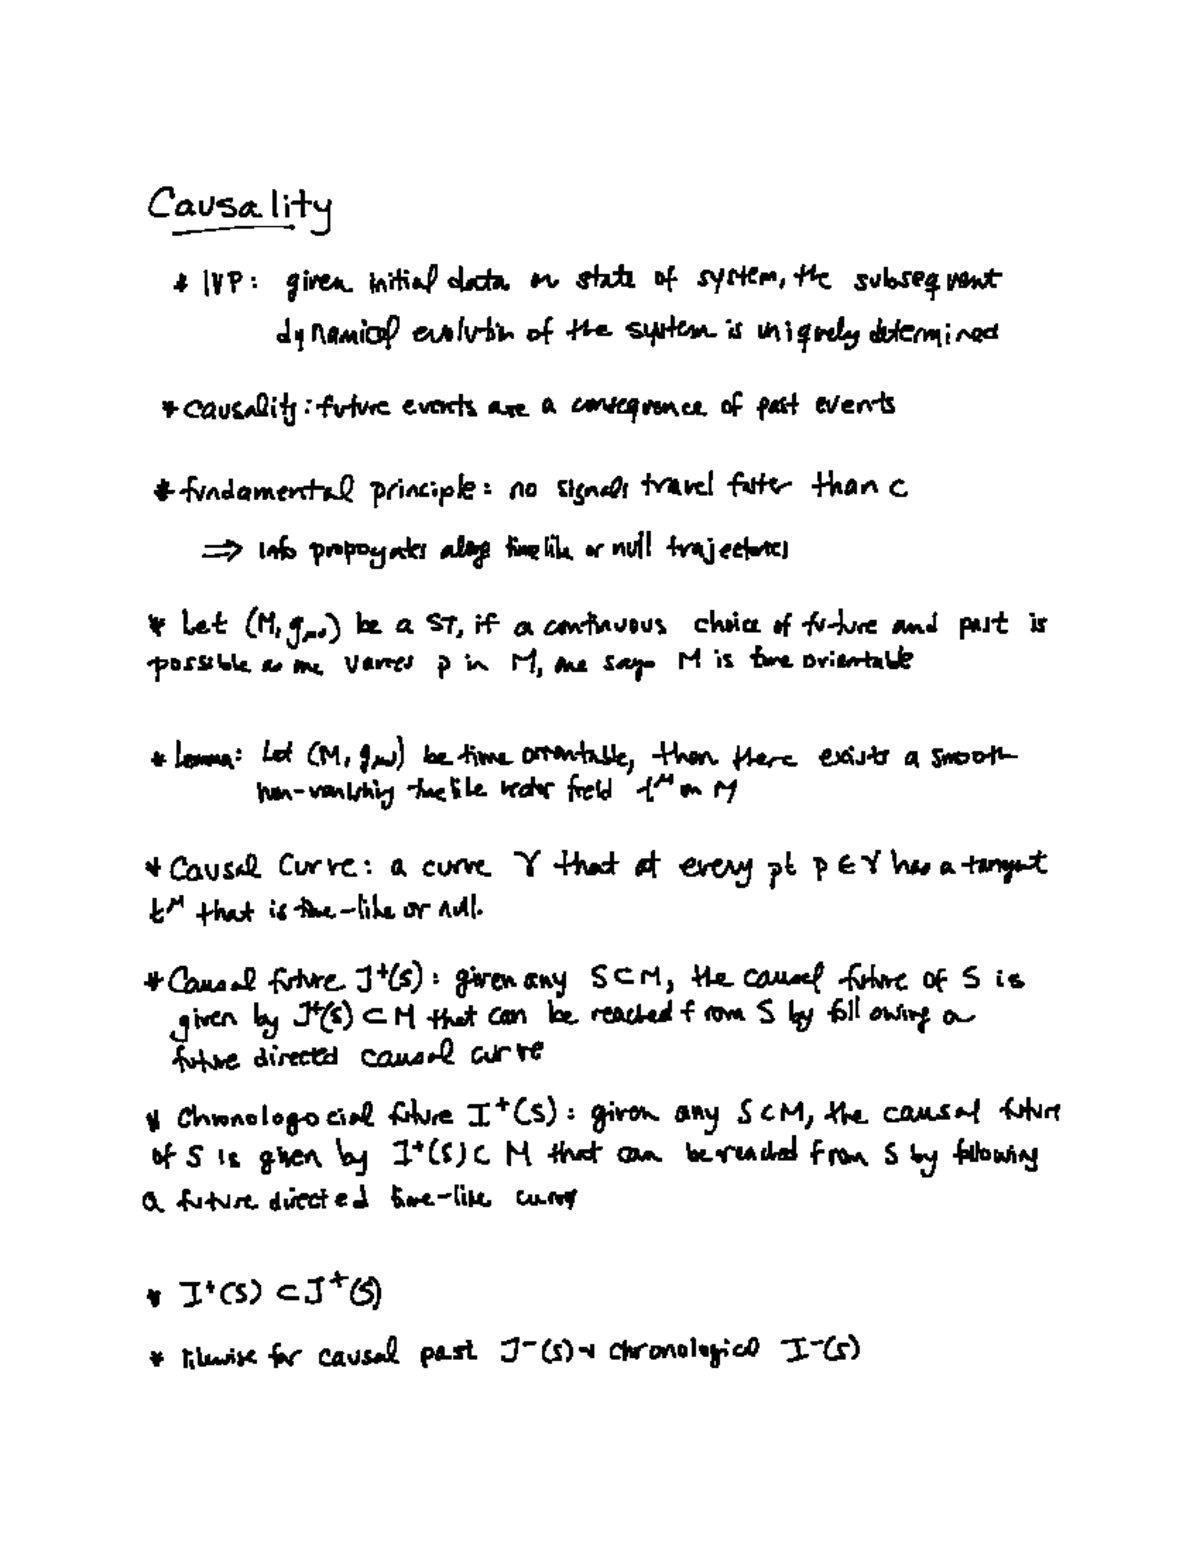 Causality
* IVP: given initial data on state of system, the subsequent
dynamical evolution of the system is uniquely determined
* causality: future events are a consequence of past events
* fundamental principle: no signals travel faster than c
⇒ info propogates along timelike or null trajectories
* Let (M, gμν) be a ST, if a continuous choice of future and past is
possible as one varies p in M, one says M is time orientable
* Lemma: Let (M, gμν) be time orientable, then there exists a smooth
non-vanishing timelike vector field t^μ on M
* Causal Curve: a curve γ that at every pt p ∈ γ has a tangent
t^μ that is time-like or null.
* Causal future J⁺(S): given any S⊂M, the causal future of S is
given by J⁺(S) ⊂ M that can be reached from S by following a
future directed causal curve
* Chronologocial future I⁺(S): given any S⊂M, the causal future
of S is given by I⁺(S) ⊂ M that can be reached from S by following
a future directed time-like curve
* I⁺(S) ⊂ J⁺(S)
* likewise for causal past J⁻(S) + chronological I⁻(S)